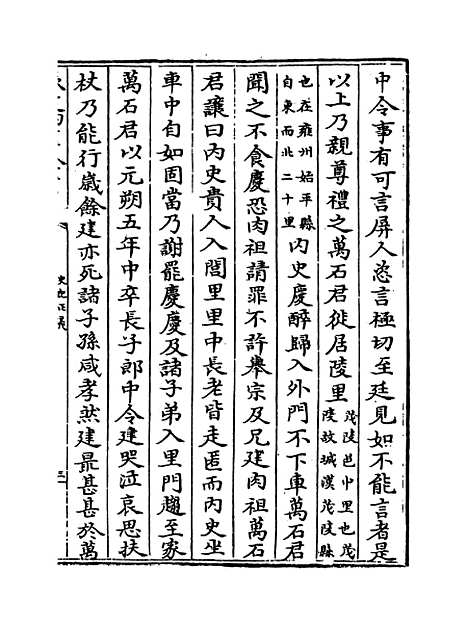 中令事有可言屏人恣言極切至廷見如不能言者是
以上乃親尊禮之萬石君徙居陵里茂陵邑中里也茂陵故城漢茂陵縣
也在雍州始平縣自東而北二十里內史慶醉歸入外門不下車萬石君
聞之不食慶恐肉袒請罪不許舉宗及兄建肉袒萬石
君讓曰內史貴人入閭里里中長老皆走匿而內史坐
車中自如固當乃謝罷慶慶及諸子弟入里門趨至家
萬石君以元朔五年中卒長子郎中令建哭泣哀思扶
杖乃能行歲餘建亦死諸子孫咸孝然建最甚甚於萬
史記正義